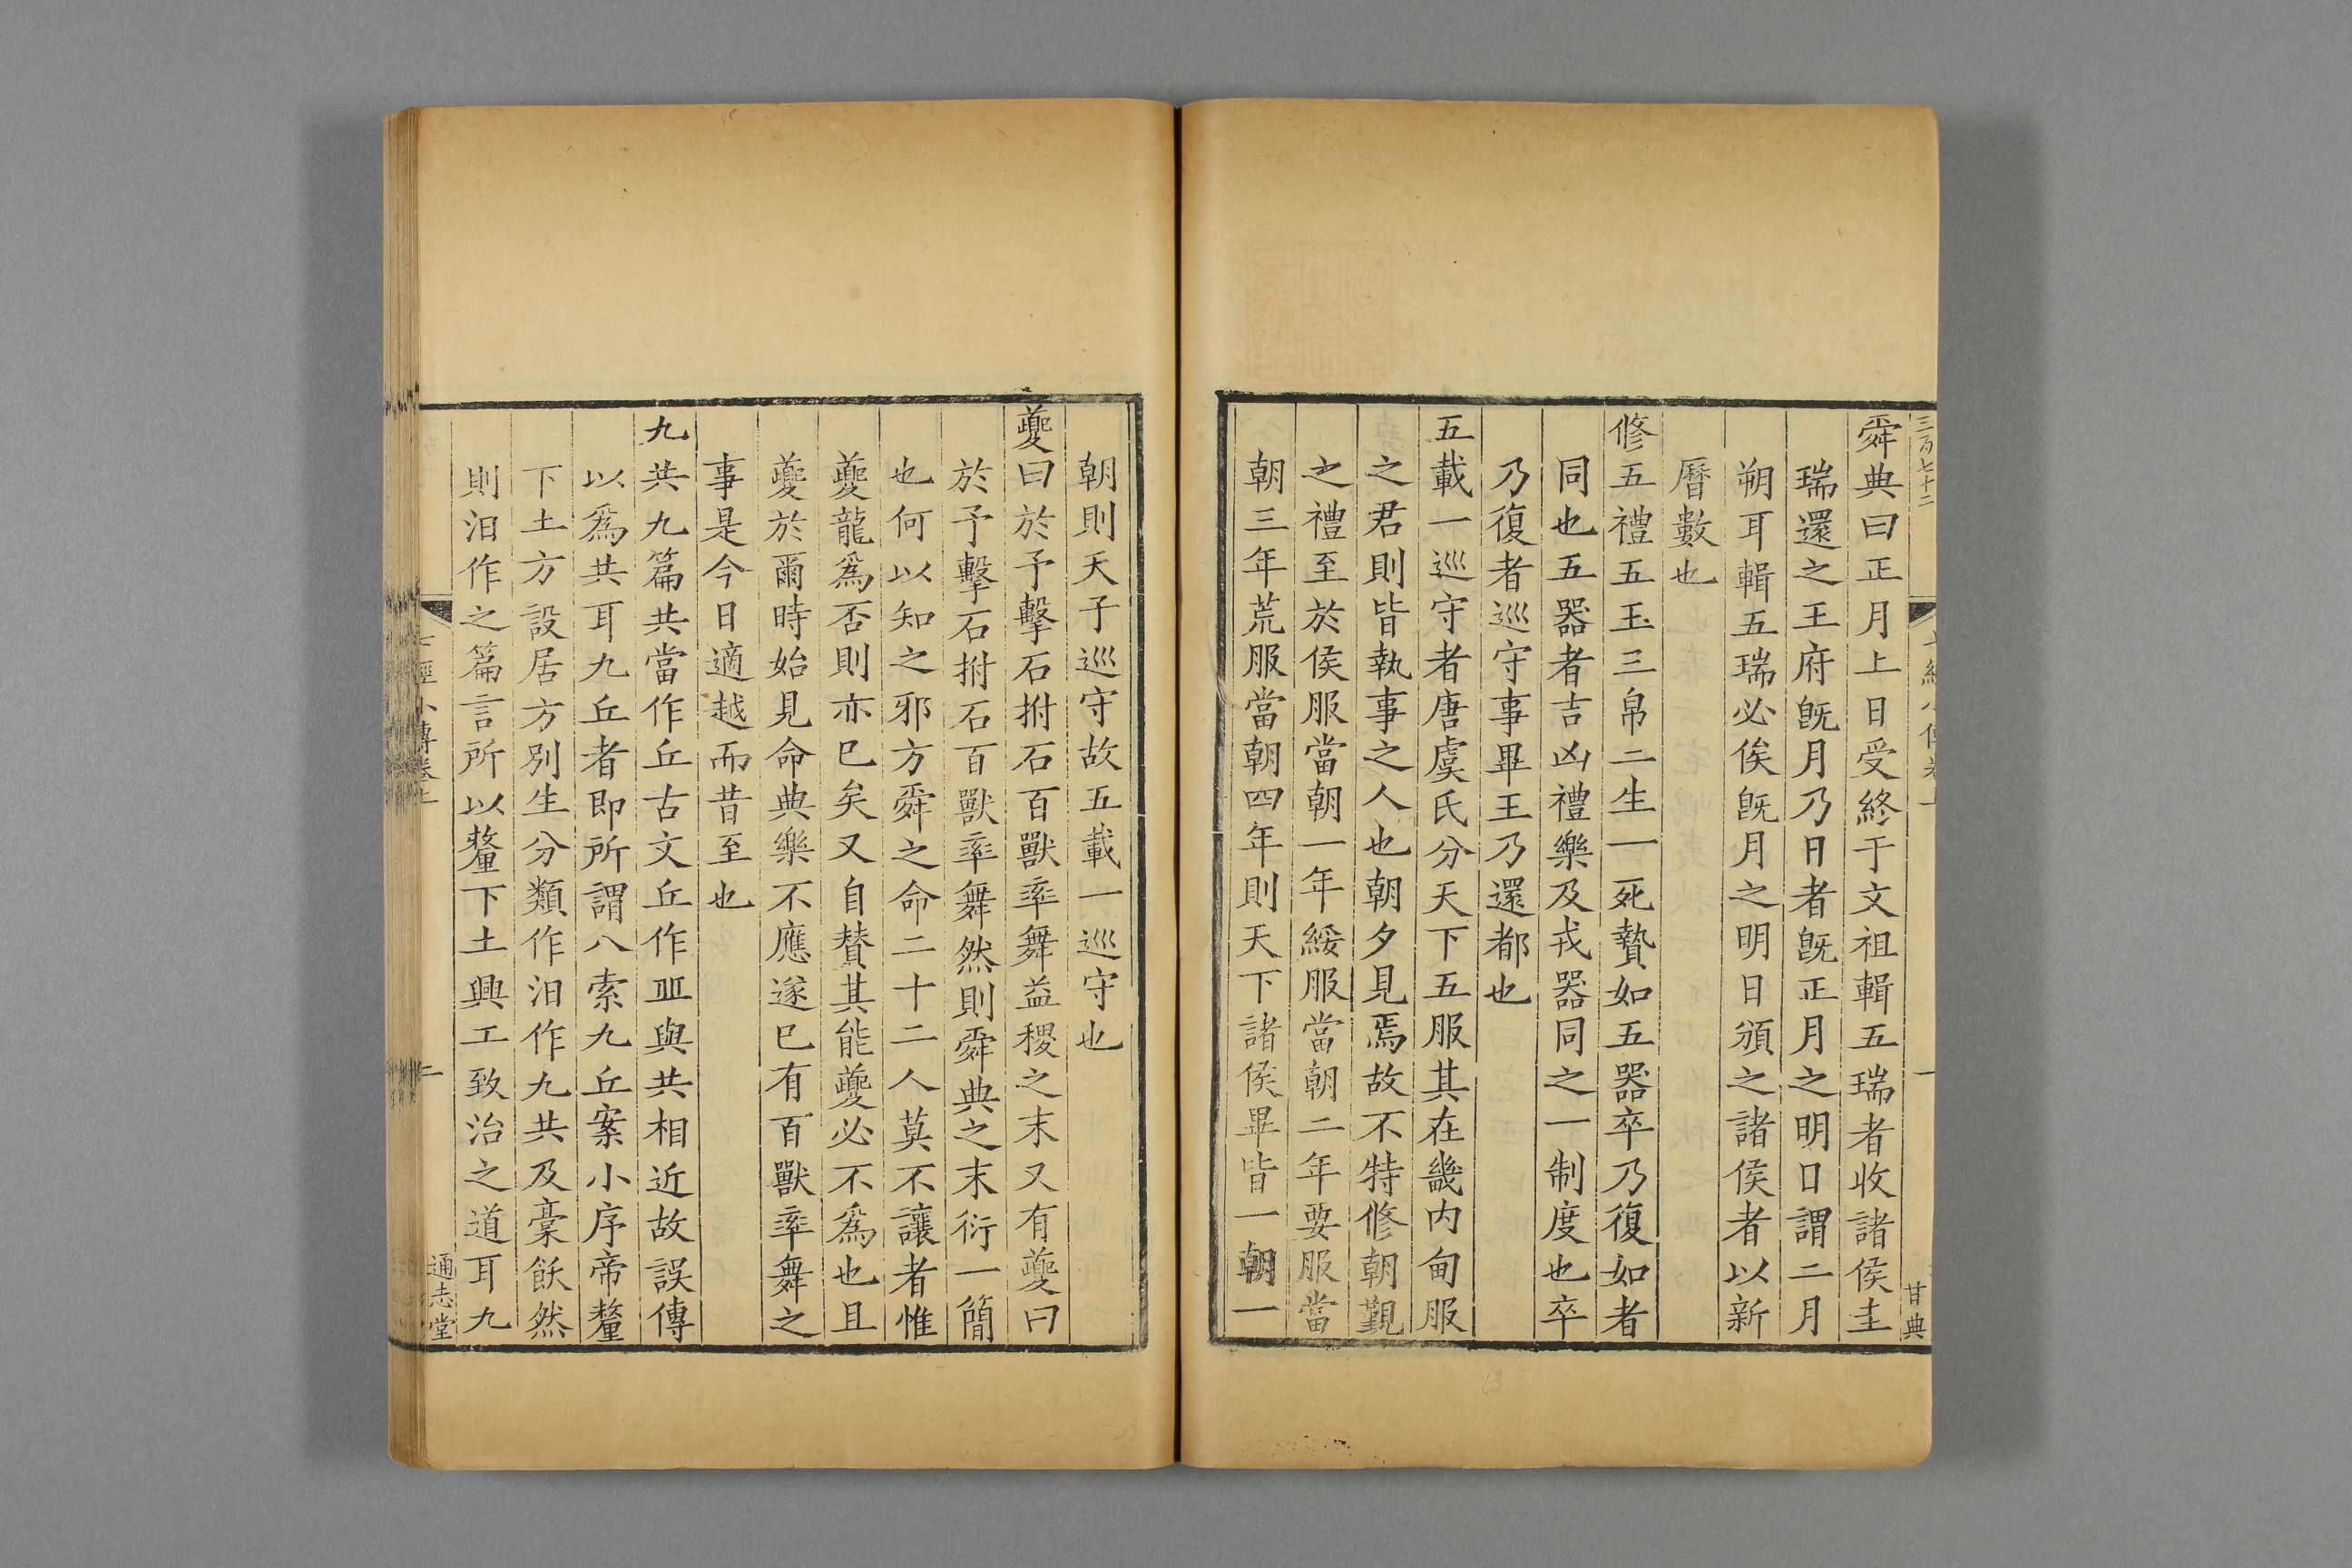 三百七十二
甘典
舜典曰正月上日受終于文祖輯五瑞者收諸侯圭
瑞還之王府旣月乃日者旣正月之明日謂二月
朔耳輯五瑞必俟旣月之明日頒之諸侯者以新
曆數也
修五禮五玉三帛二生一死贄如五器卒乃復如者
同也五器者吉凶禮樂及戎器同之一制度也卒
乃復者巡守事畢王乃還都也
五載一巡守者唐虞氏分天下五服其在畿内甸服
之君則皆執事之人也朝夕見焉故不特修朝覲
之禮至於侯服當朝一年綏服當朝二年要服當
朝三年荒服當朝四年則天下諸侯畢皆一朝一
朝則天子巡守故五載一巡守也
夔曰於予擊石拊石百獸率舞益稷之末又有夔曰
於予擊石拊石百獸率舞然則舜典之末衍一簡
也何以知之邪方舜之命二十二人莫不讓者惟
夔龍爲否則亦已矣又自賛其能夔必不爲也且
夔於爾時始見命典樂不應遂已有百獸率舞之
事是今日適越而昔至也
九共九篇共當作丘古文丘作𠀌與共相近故誤傳
以爲共耳九丘者即所謂八索九丘案小序帝釐
下土方設居方別生分類作汩作九共及稾飫然
則汩作之篇言所以釐下土興工致治之道耳九
七經小傳卷上
二
通志堂